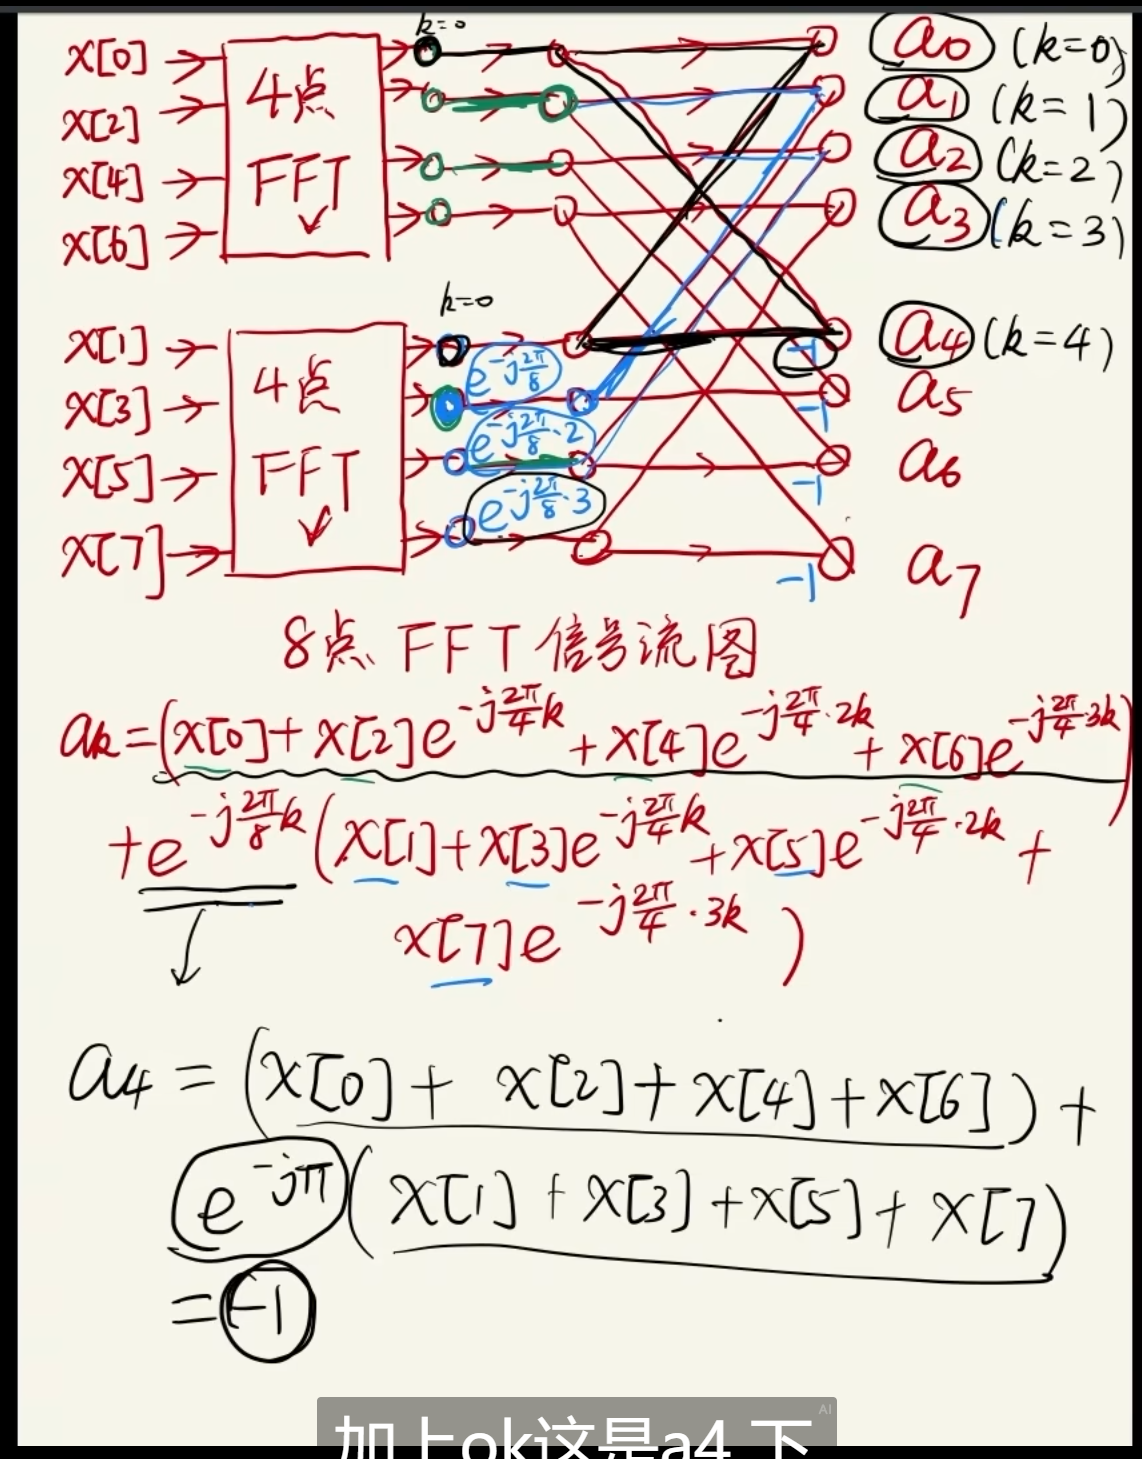 k=0
x[0]
x[2]
x[4]
x[6]
4点
FFT
a0 (k=0)
a1 (k=1)
a2 (k=2)
a3 (k=3)
k=0
x[1]
x[3]
x[5]
x[7]
4点
FFT
e^{-j\frac{2π}{8}}
e^{-j\frac{2π}{8}·2}
e^{-j\frac{2π}{8}·3}
-1 a4 (k=4)
-1 a5
-1 a6
-1 a7
8点 FFT 信号流图
ak=(x[0]+x[2]e^{-j\frac{2π}{4}k}+x[4]e^{-j\frac{2π}{4}·2k}+x[6]e^{-j\frac{2π}{4}·3k})
+e^{-j\frac{2π}{8}k}(x[1]+x[3]e^{-j\frac{2π}{4}k}+x[5]e^{-j\frac{2π}{4}·2k}+
x[7]e^{-j\frac{2π}{4}·3k})
a4=(x[0]+x[2]+x[4]+x[6])+
e^{-jπ}(x[1]+x[3]+x[5]+x[7)
=-1
AI
加上ok这是a4 下